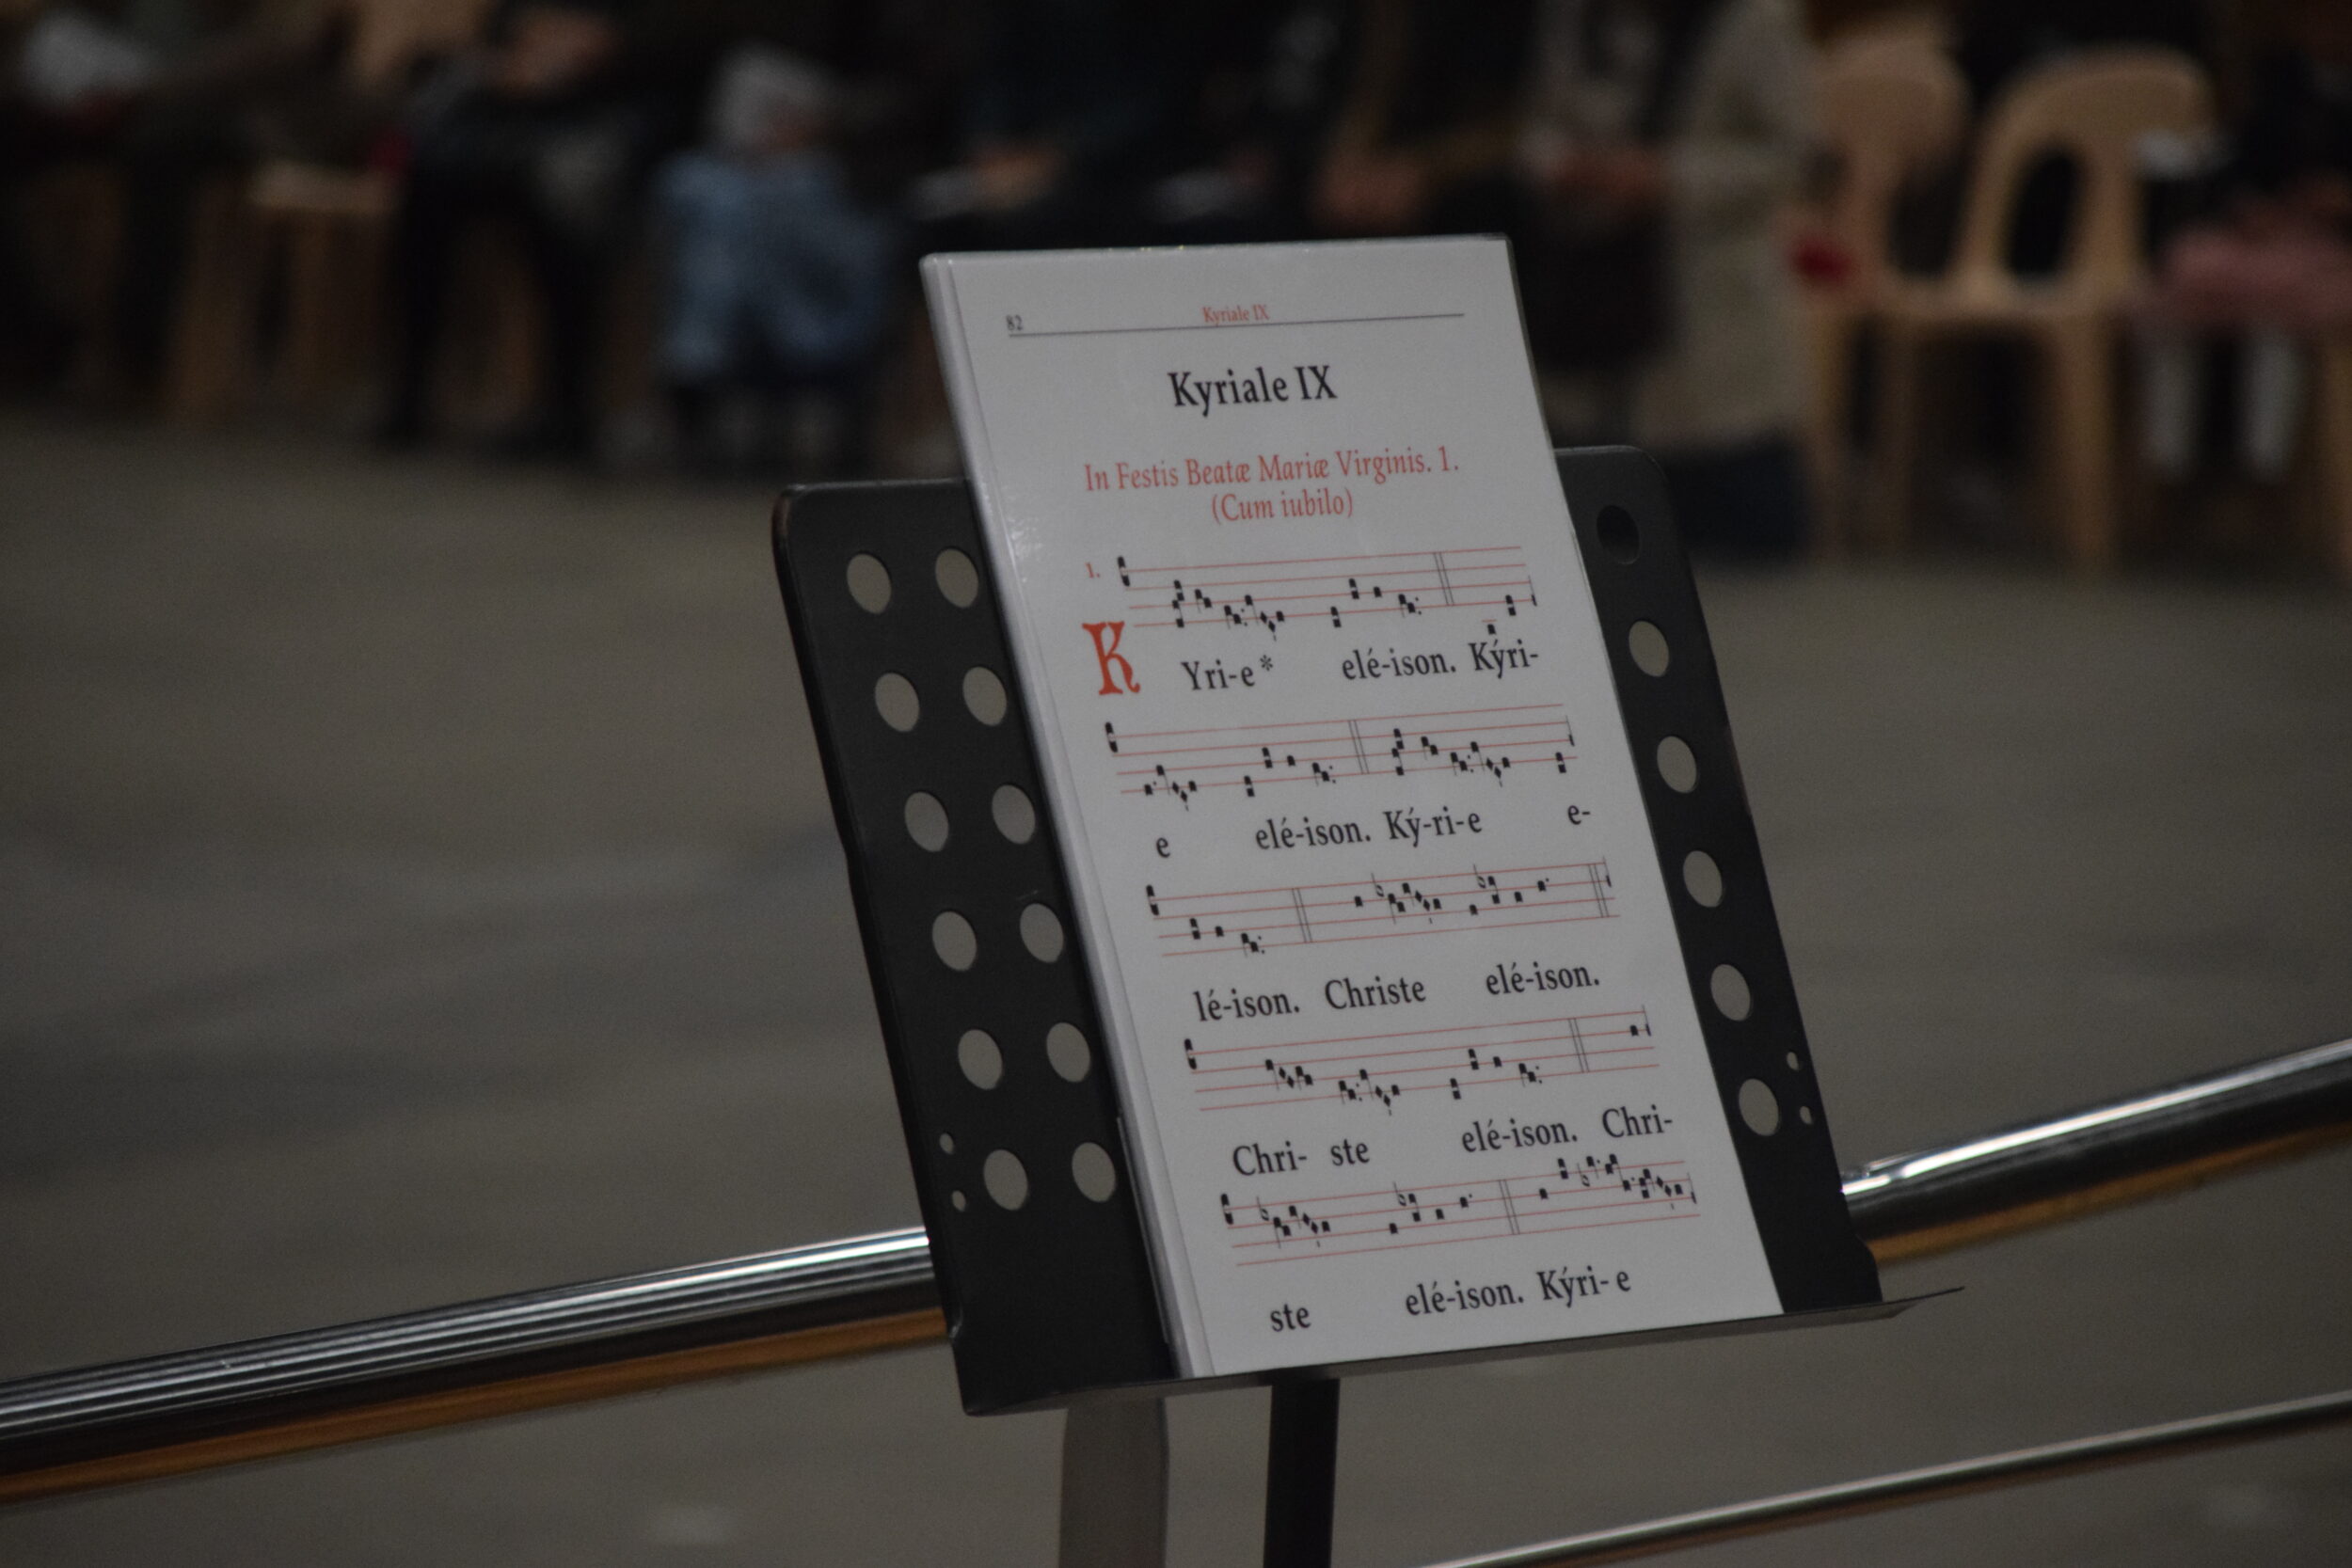 82 Kyriale IX
Kyriale IX
In Festis Beatæ Mariæ Virginis. 1.
(Cum iubilo)
1.
K Yri-e* elé-ison. Kýri-
e elé-ison. Ký-ri-e e-
lé-ison. Christe elé-ison.
Chri- ste elé-ison. Chri-
ste elé-ison. Kýri- e